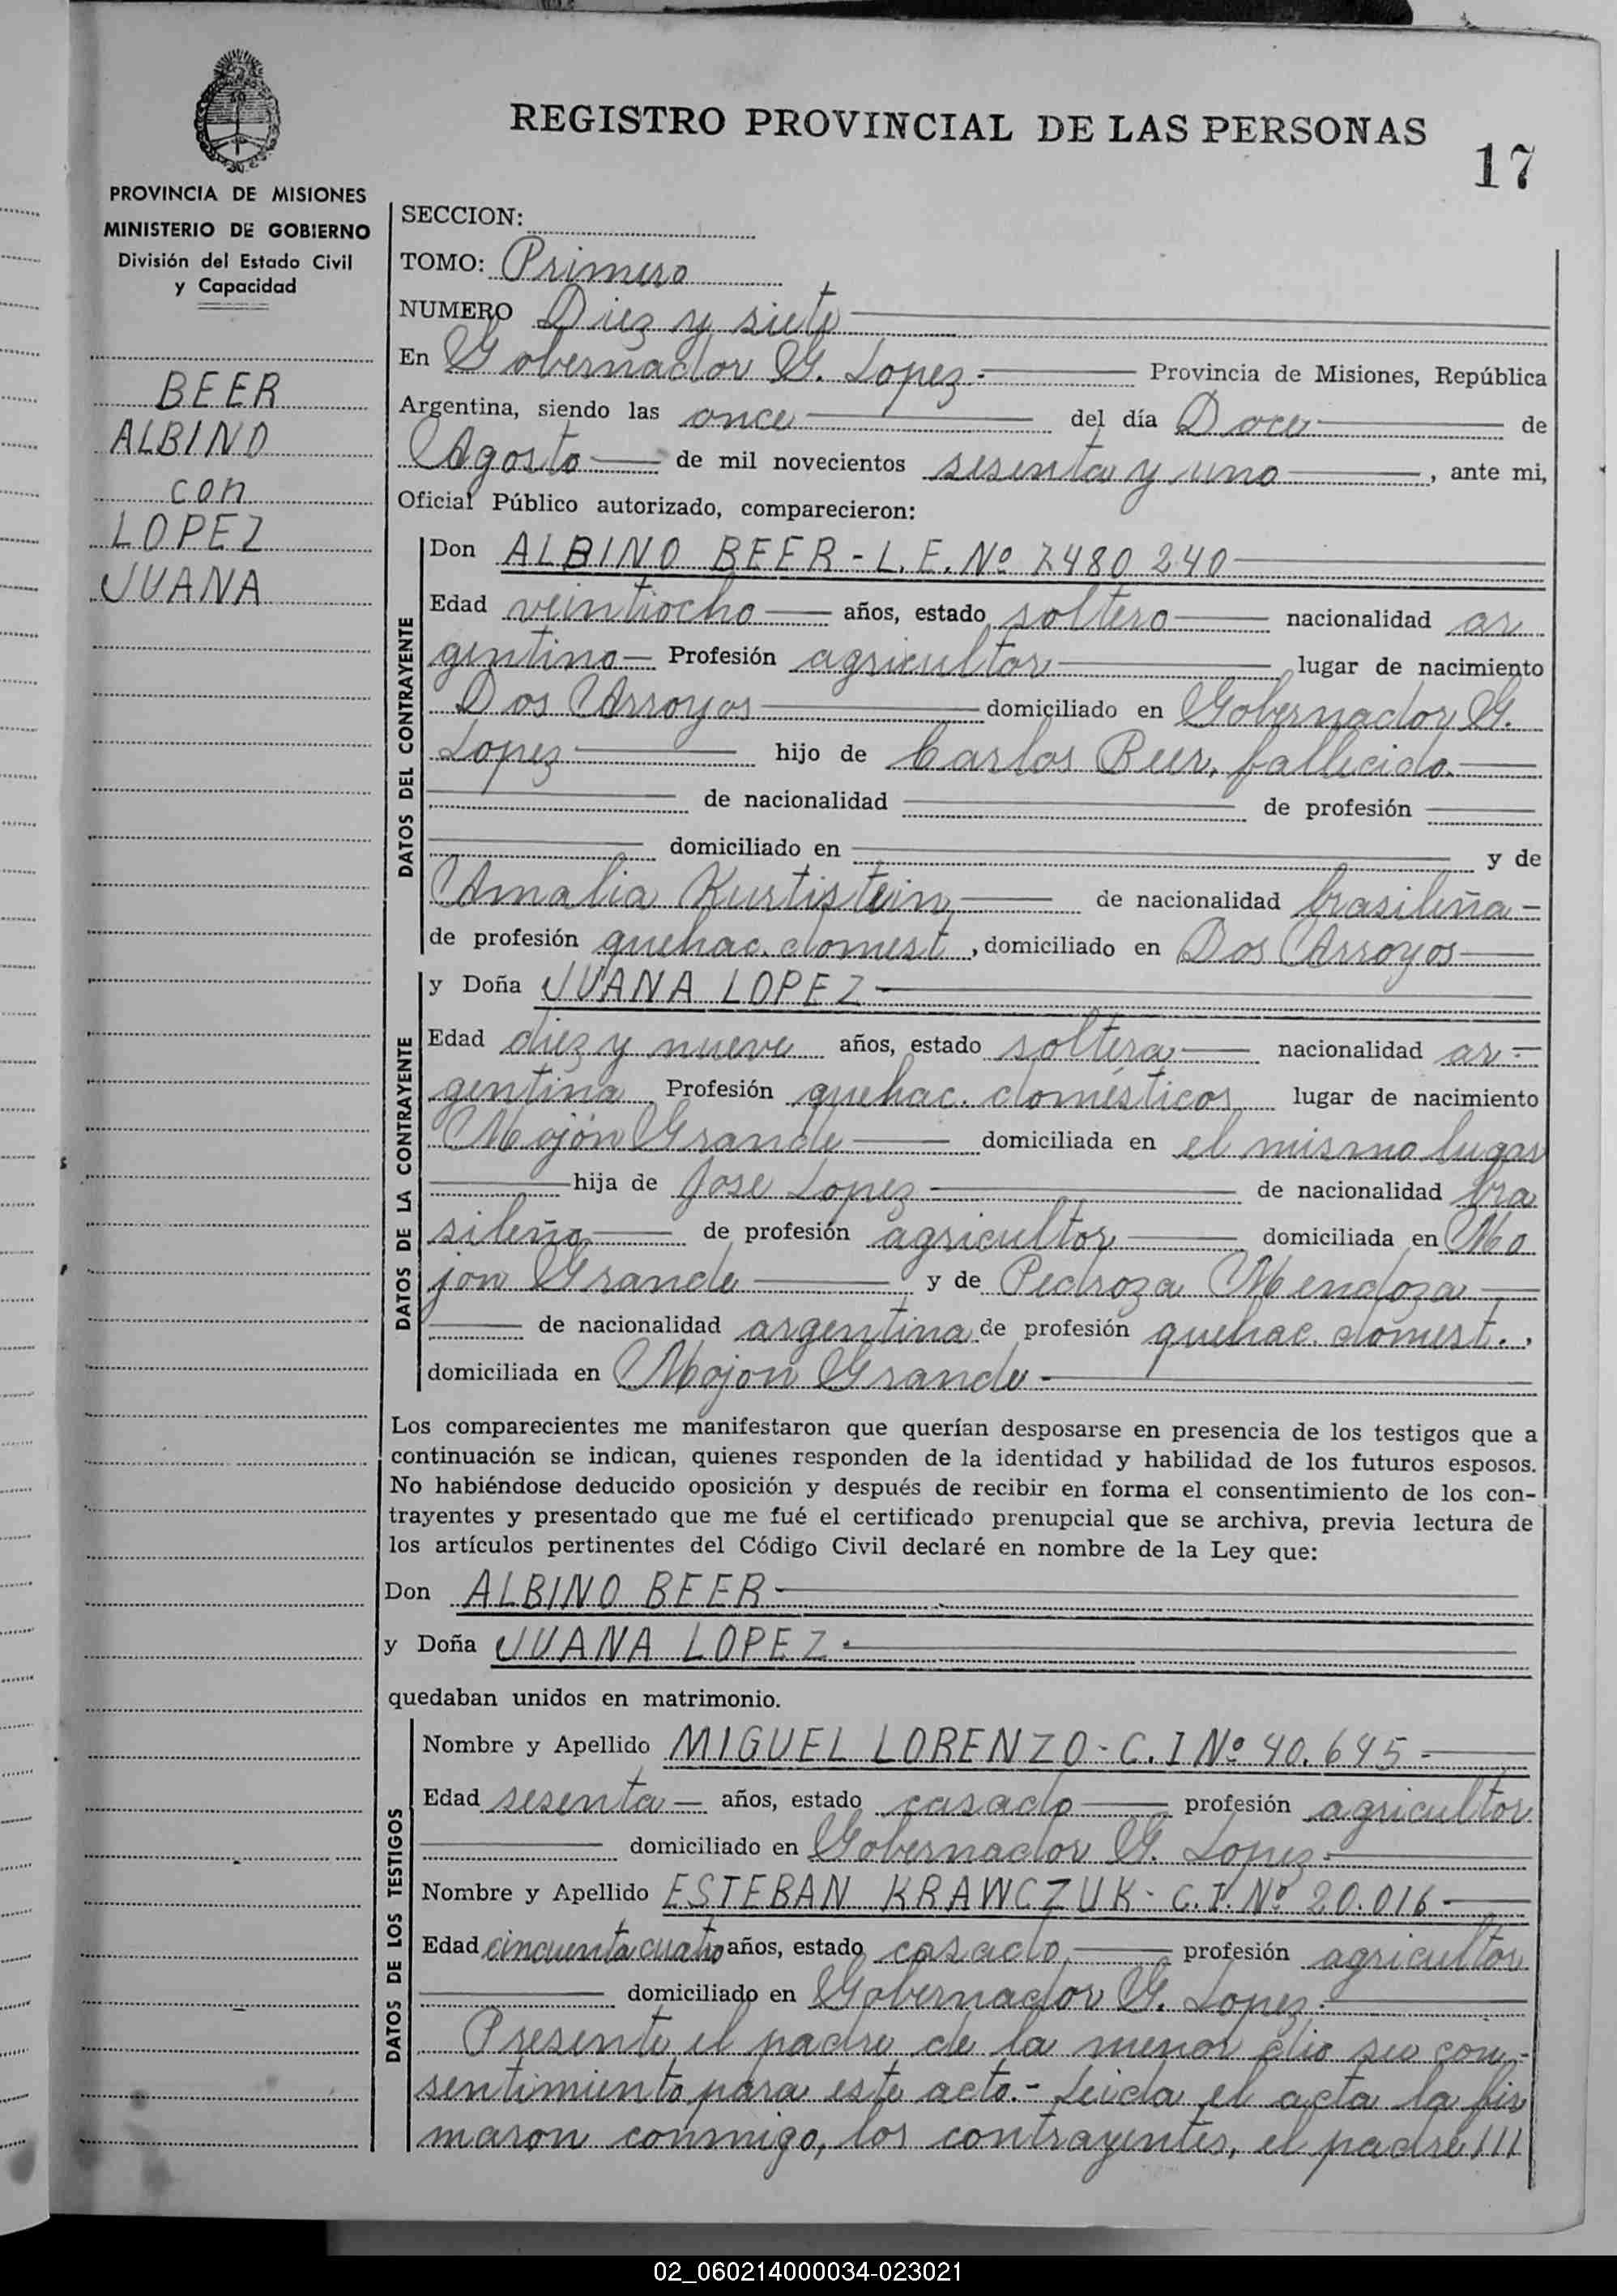 REGISTRO PROVINCIAL DE LAS PERSONAS
17
PROVINCIA DE MISIONES
MINISTERIO DE GOBIERNO
División del Estado Civil
y Capacidad
BEER
ALBINO
con
LOPEZ
JUANA
SECCION:
TOMO: Primero
NUMERO Diez y siete
En Gobernador G. Lopez.- Provincia de Misiones, República
Argentina, siendo las once del día Doce de
Agosto de mil novecientos sesenta y uno, ante mi,
Oficial Público autorizado, comparecieron:
DATOS DEL CONTRAYENTE
Don ALBINO BEER - L.E. Nº 7480 240
Edad veintiocho años, estado soltero nacionalidad ar
gentino Profesión agricultor lugar de nacimiento
Dos Arroyos domiciliado en Gobernador G.
Lopez hijo de Carlos Beer, fallecido.
de nacionalidad de profesión
domiciliado en y de
Amalia Kurtistein, de nacionalidad brasileña -
de profesión quehac. domest, domiciliado en Dos Arroyos
DATOS DE LA CONTRAYENTE
y Doña JUANA LOPEZ -
Edad diez y nueve años, estado soltera nacionalidad ar-
gentina Profesión quehac. domésticos lugar de nacimiento
Mojón Grande domiciliada en el mismo lugar
hija de Jose Lopez de nacionalidad bra
sileño de profesión agricultor domiciliada en Mo
jon Grande y de Pedroza Mendoza
de nacionalidad argentina de profesión quehac. domest.,
domiciliada en Mojon Grande -
Los comparecientes me manifestaron que querían desposarse en presencia de los testigos que a
continuación se indican, quienes responden de la identidad y habilidad de los futuros esposos.
No habiéndose deducido oposición y después de recibir en forma el consentimiento de los con-
trayentes y presentado que me fué el certificado prenupcial que se archiva, previa lectura de
los artículos pertinentes del Código Civil declaré en nombre de la Ley que:
Don ALBINO BEER
y Doña JUANA LOPEZ.
quedaban unidos en matrimonio.
DATOS DE LOS TESTIGOS
Nombre y Apellido MIGUEL LORENZO - C.I Nº 40.645 -
Edad sesenta años, estado casado profesión agricultor
domiciliado en Gobernador G. Lopez.
Nombre y Apellido ESTEBAN KRAWCZUK - C.I. Nº 20.016 -
Edad cincuenta cuatro años, estado casado profesión agricultor
domiciliado en Gobernador G. Lopez.
Presente el padre de la menor dio su con-
sentimiento para este acto.- Leida el acta la fir
maron conmigo, los contrayentes, el padre ///
02_060214000034-023021